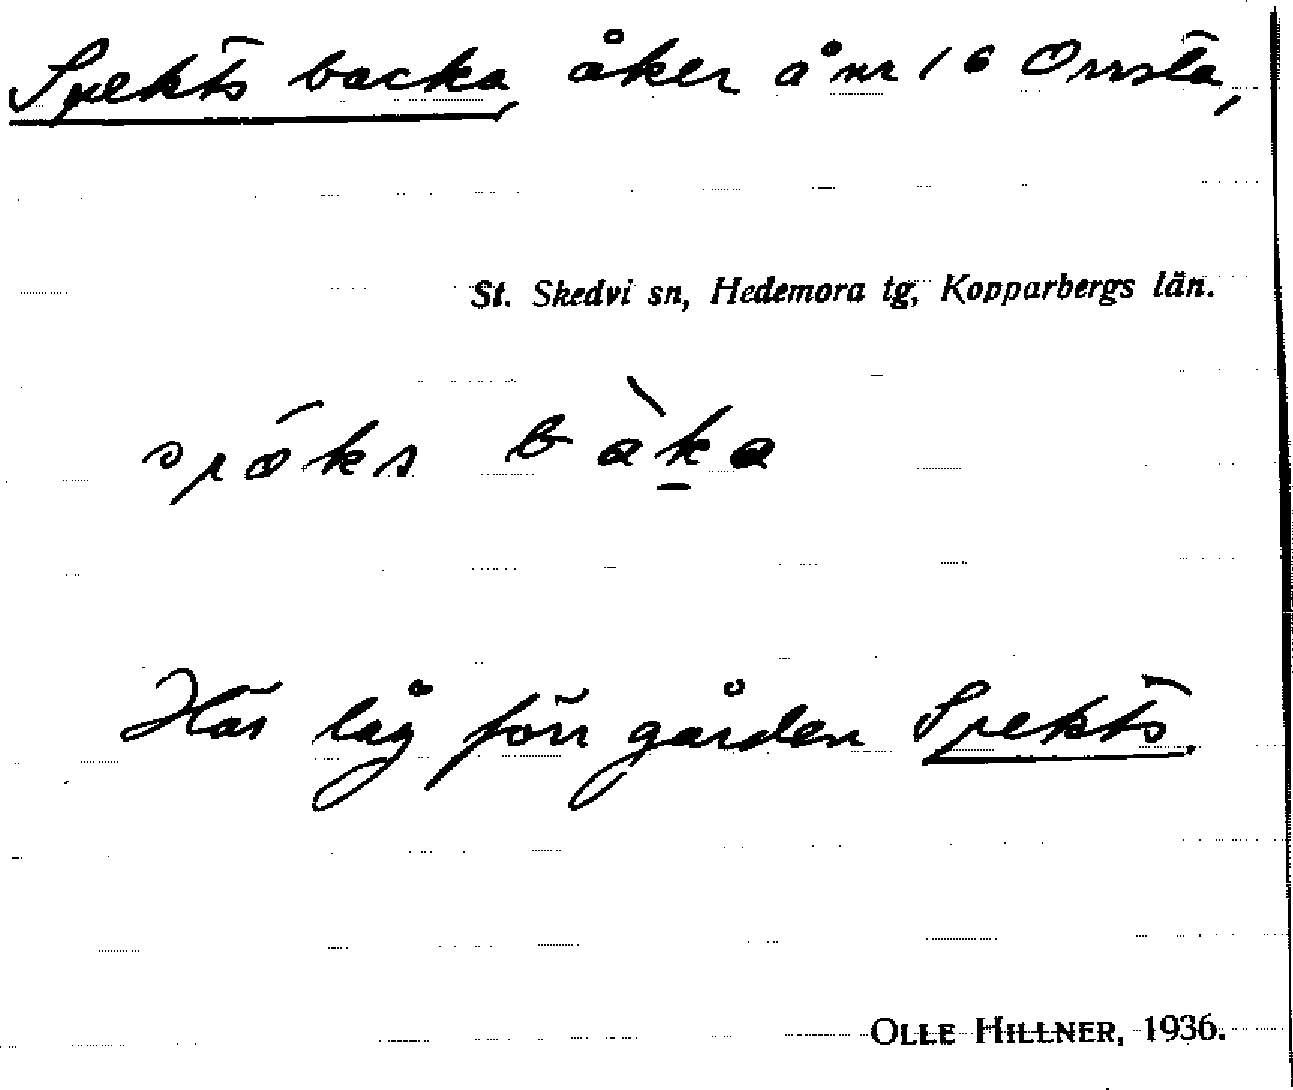 Spekts backa, åker å nr 16 Orrsta,
St. Skedvi sn, Hedemora tg, Kopparbergs län.
spöks bàka
Här låg förr gården Spekts.
OLLE HILLNER, 1936.